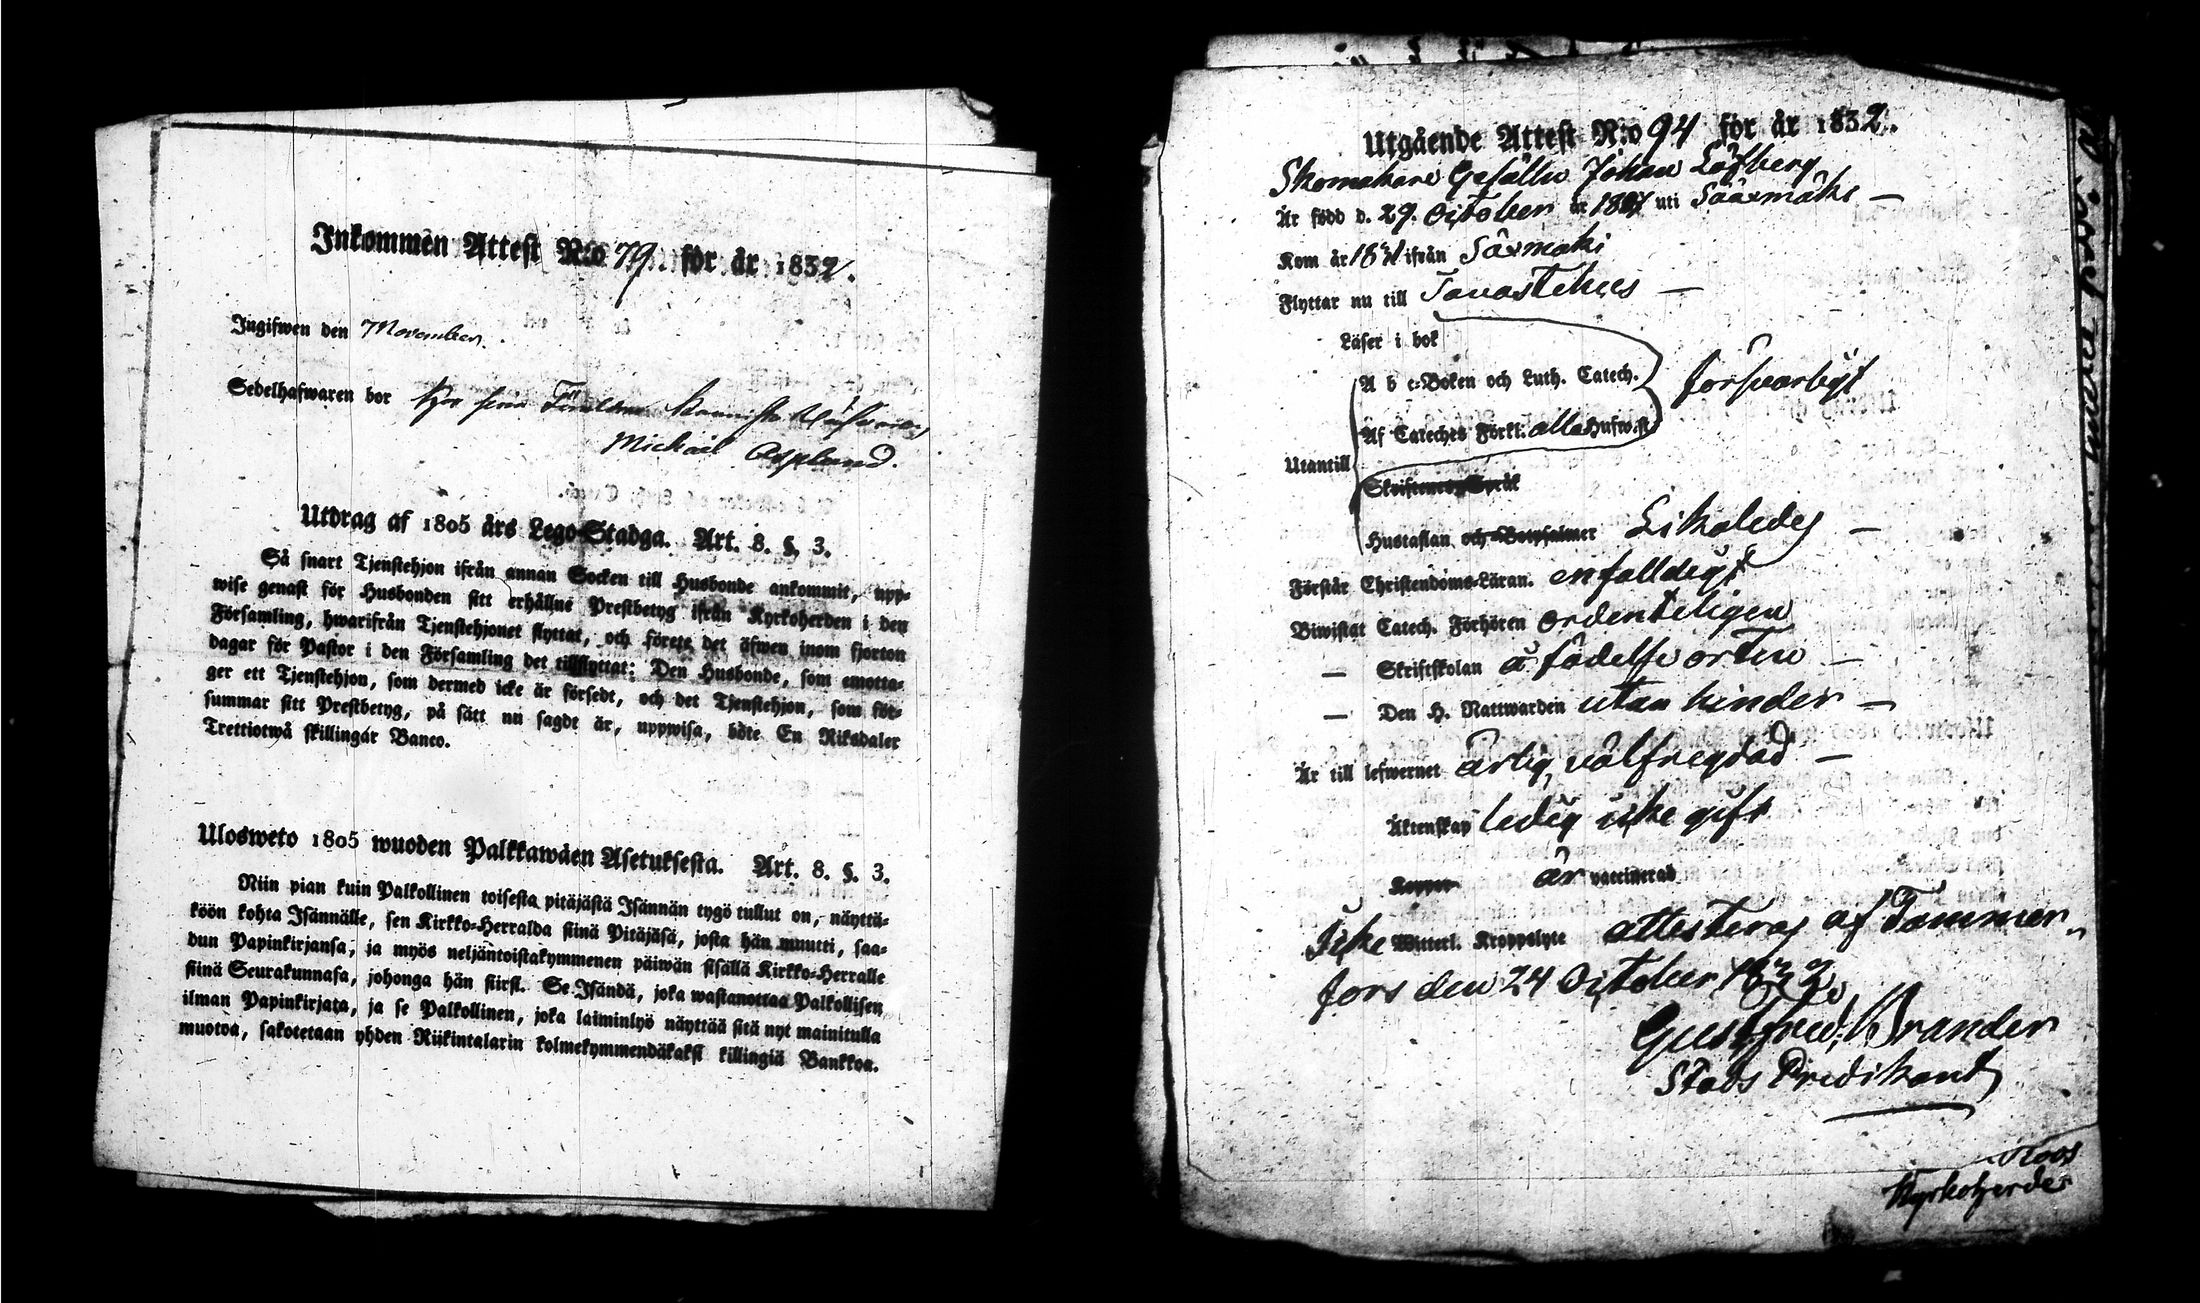 Inkommen Attest N:o 79 för år 1832.
Ingifwen den November.
Sedelhafwaren bor hos sina Föräldrar
Michael Asplund.
Utdrag af 1805 års Lego-Stadga. Art. 8. §. 3.
Så snart Tjenstehjon ifrån annan Socken till Husbonde ankommit, upp-
wise genast för Husbonden sitt erhållne Prestbetyg ifrån Kyrkoherden i den
Församling, hwarifrån Tjenstehjonet flyttat, och förete det äfwen inom fjorton
dagar för Pastor i den Församling det tillflyttat: Den Husbonde, som emotta-
ger ett Tjenstehjon, som dermed icke är försedt, och det Tjenstehjon, som för-
summar sitt Prestbetyg, på sätt nu sagdt är, uppwisa, böte En Riksdaler
Trettiotwå skillingar Banco.
Ulosweto 1805 wuoden Palkkawäen Asetuksesta. Art. 8. §. 3.
Niin pian kuin Palkollinen toisesta pitäjästä Isännän tygö tullut on, näyttä-
köön kohta Isännälle, sen Kirkko-Herralda siinä Pitäjäsä, josta hän muutti, saa-
dun Papinkirjansa, ja myös neljäntoistakymmenen päiwän sisällä Kirkko-Herralle
siinä Seurakunnasa, johonga hän siirsi. Se Isändä, joka wastanottaa Palkollisen
ilman Papinkirjata, ja se Palkollinen, joka laiminlyö näyttää sitä nyt mainitulla
muotoa, sakotetaan yhden Riikintalarin kolmekymmendäkaksi killingiä Bankkoa.
Utgående Attest N:o 94 för år 1832.
Skomakare Gesällen Johan Löfberg
Är född d. 29. October år uti Sääxmäki —
Kom år ifrån Säxmäki
Flyttar nu till Tavastehus —
Läser i bok
A b c-Boken och Luth. Catech. försvarligt
Af Cateches Förkl: alla Hufw.st.
Utantill
Skriftenes Språk
Hustaflan och Botpsalmer Likaledes —
Förstår Christendoms-Läran. enfalldigt
Biwistat Catech. Förhören ordenteligen
— Skriftskolan å födelse orten —
— Den H. Nattwarden utan hinder —
Är till lefwernet ärlig, välfregdad —
Äktenskap ledig icke gift
Koppor är vaccinerad
Icke Witterl. Kroppslyte attesteras af Tammer-
fors den 24 October 1832
Gust. Fred. Brander
Stads Predikant
Roos
Kyrkoherde